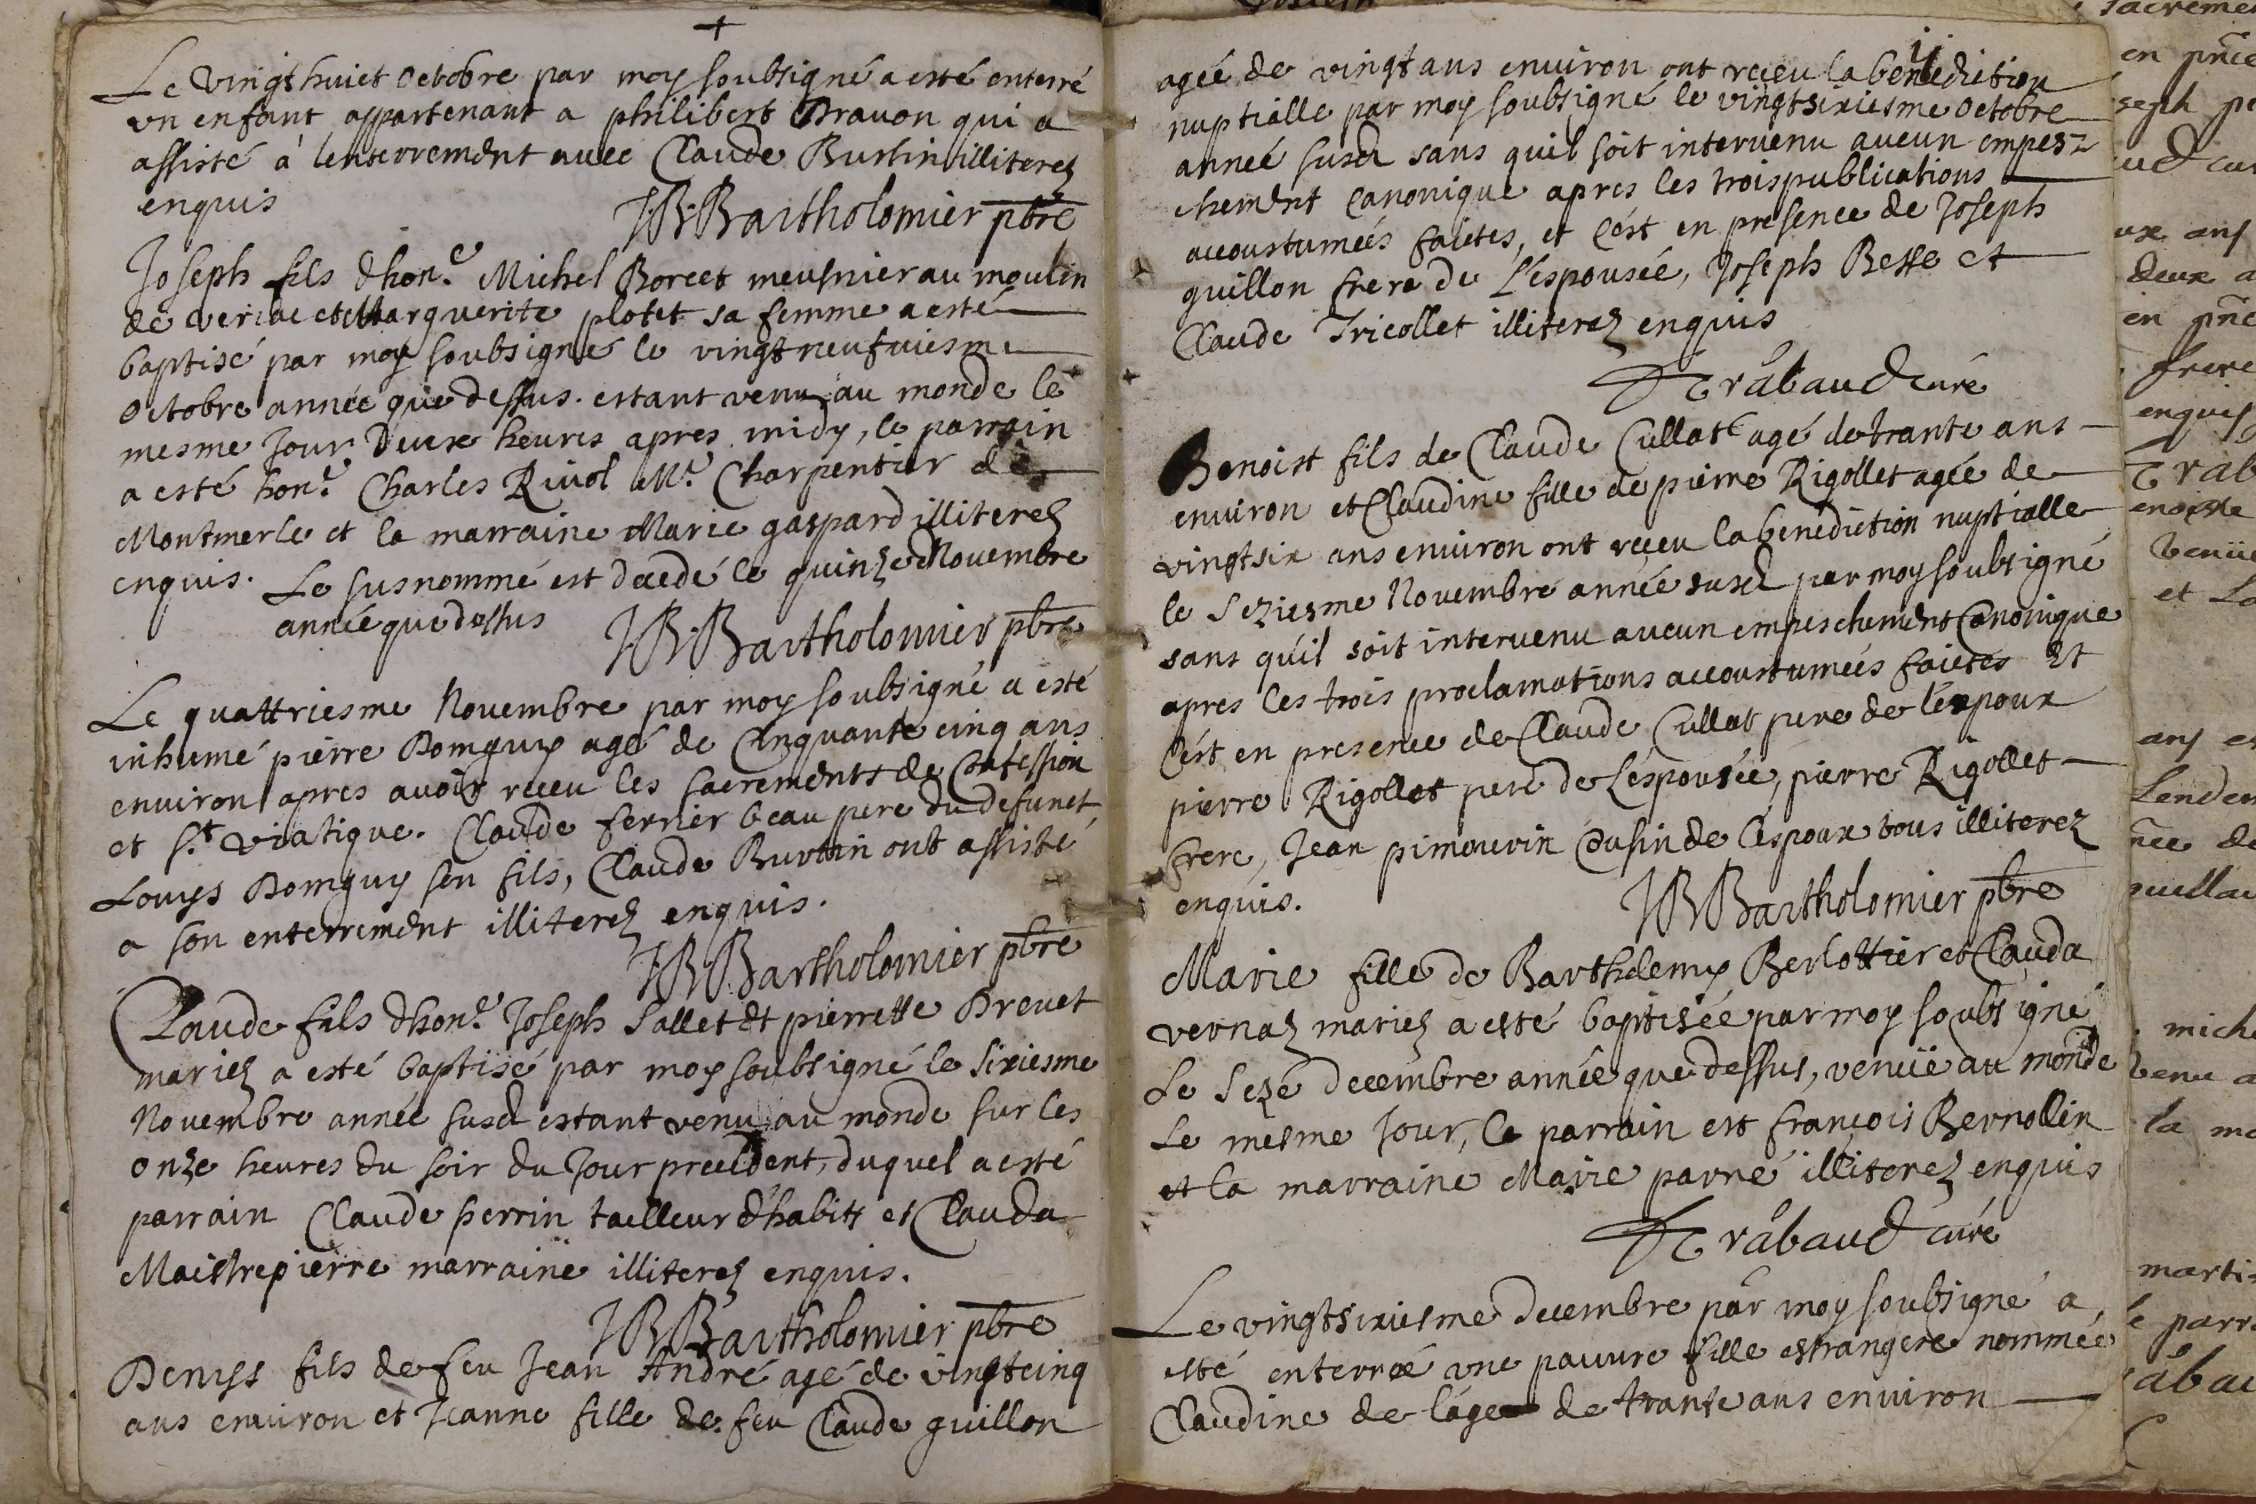 Le vingthuict Octobre par moy soubsigné a esté enterré
vn enfant appartenant a philibert Brauon qui a
assisté a lenterrement auec Claude Burtin illiterez
enquis
JB. Bartholomier pbre
Joseph fils d'hon.e Michel Borcet meusnier au moulin
de veriac et Marguerite plotet sa femme a esté
baptisé par moy soubsigné le vingtneufuiesme
Octobre année que dessus. estant venu au monde le
mesme Jour Deux heures apres midy, le parrain
a esté hon.e Charles Riuol M.e Charpentier de
Montmerle et la marraine Marie gaspard illiterez
enquis. Le susnommé est decedé le quinze Novembre
année que dessus
JB. Bartholomier pbre
Le quattriesme Novembre par moy soubsigné a esté
inhumé pierre Domguy agé de Cinquante cinq ans
environ apres avoir receu les sacrements de Confession
et s.t viatique. Claude ferrier beau pere du defunct,
Louys Domguy son fils, Claude Burtin ont assisté
a son enterrement illiterez enquis.
JB. Bartholomier pbre
Claude fils d'hon.e Joseph Sallet et pierrette Brevet
mariez a esté baptisé par moy soubsigné le sixiesme
Novembre année susd estant venu au monde sur les
onze heures du soir du Jour precedent, duquel a esté
parrain Claude perrin tailleur d'habits et Clauda
Maistrepierre marraine illiterez enquis.
JB Bartholomier pbre
Denyss fils de feu Jean André agé de vingtcinq
ans environ et Jeanne fille de feu Claude guillon
agée de vingt ans environ ont receu la benediction
nuptialle par moy soubsigné le vingtsixiesme Octobre
année susd sans quil soit intervenu aucun empes=
chement canonique apres les trois publications
accoustumées faictes, et c'est en presence de Joseph
guillon frere de l'espousée, Joseph Besse et
Claude Tricollet illiterez enquis
Trabaud curé
Benoist fils de Claude Cullat agé de trante ans
environ et Claudine fille de pierre Rigollet agée de
vingtsix ans environ ont receu la benediction nuptialle
le seziesme Novembre année susd par moy soubsigné
sans qu'il soit intervenu aucun empeschement Canonique
apres les trois proclamations accoustumées faictes Et
c'est en presence de Claude Cullat pere de l'espoux
pierre Rigollet pere de l'espousée, pierre Rigollet
frere, Jean pimouvin Cousin de l'espoux tous illiterez
enquis.
JB Bartholomier pbre
Marie fille de Barthelemy Berlottier et Clauda
vernaz mariez a esté baptisée par moy soubsigné
Le seze decembre année que dessus, venüe au monde
Le mesme Jour, le parrain est françois Bernollin
et la marraine Marie parne illiterez enquis
Trabaud curé
Le vingtsixiesme decembre par moy soubsigné a
esté enterrée une pauure fille estrangere nommée
Claudine de l'age de trante ans environ